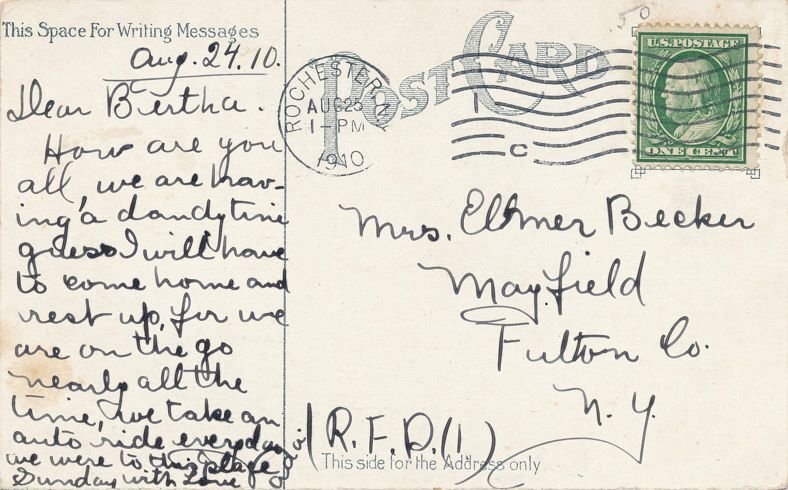 This Space For Writing Messages
Aug. 24. 10.
Dear Bertha.
How are you
all, we are hav-
ing a dandy time
guess I will have
to come home and
rest up, for we
are on the go
nearly all the
time, we take an
auto ride everyday
we were to this place
Sunday with Love
POST CARD
ROCHESTER, N.Y.
AUG 25
1-PM
1910
C
50
U.S. POSTAGE
ONE CENT
Mrs. Elmer Becker
Mayfield
Fulton Co.
N.Y.
R.F.D.(1.)
This side for the Address only